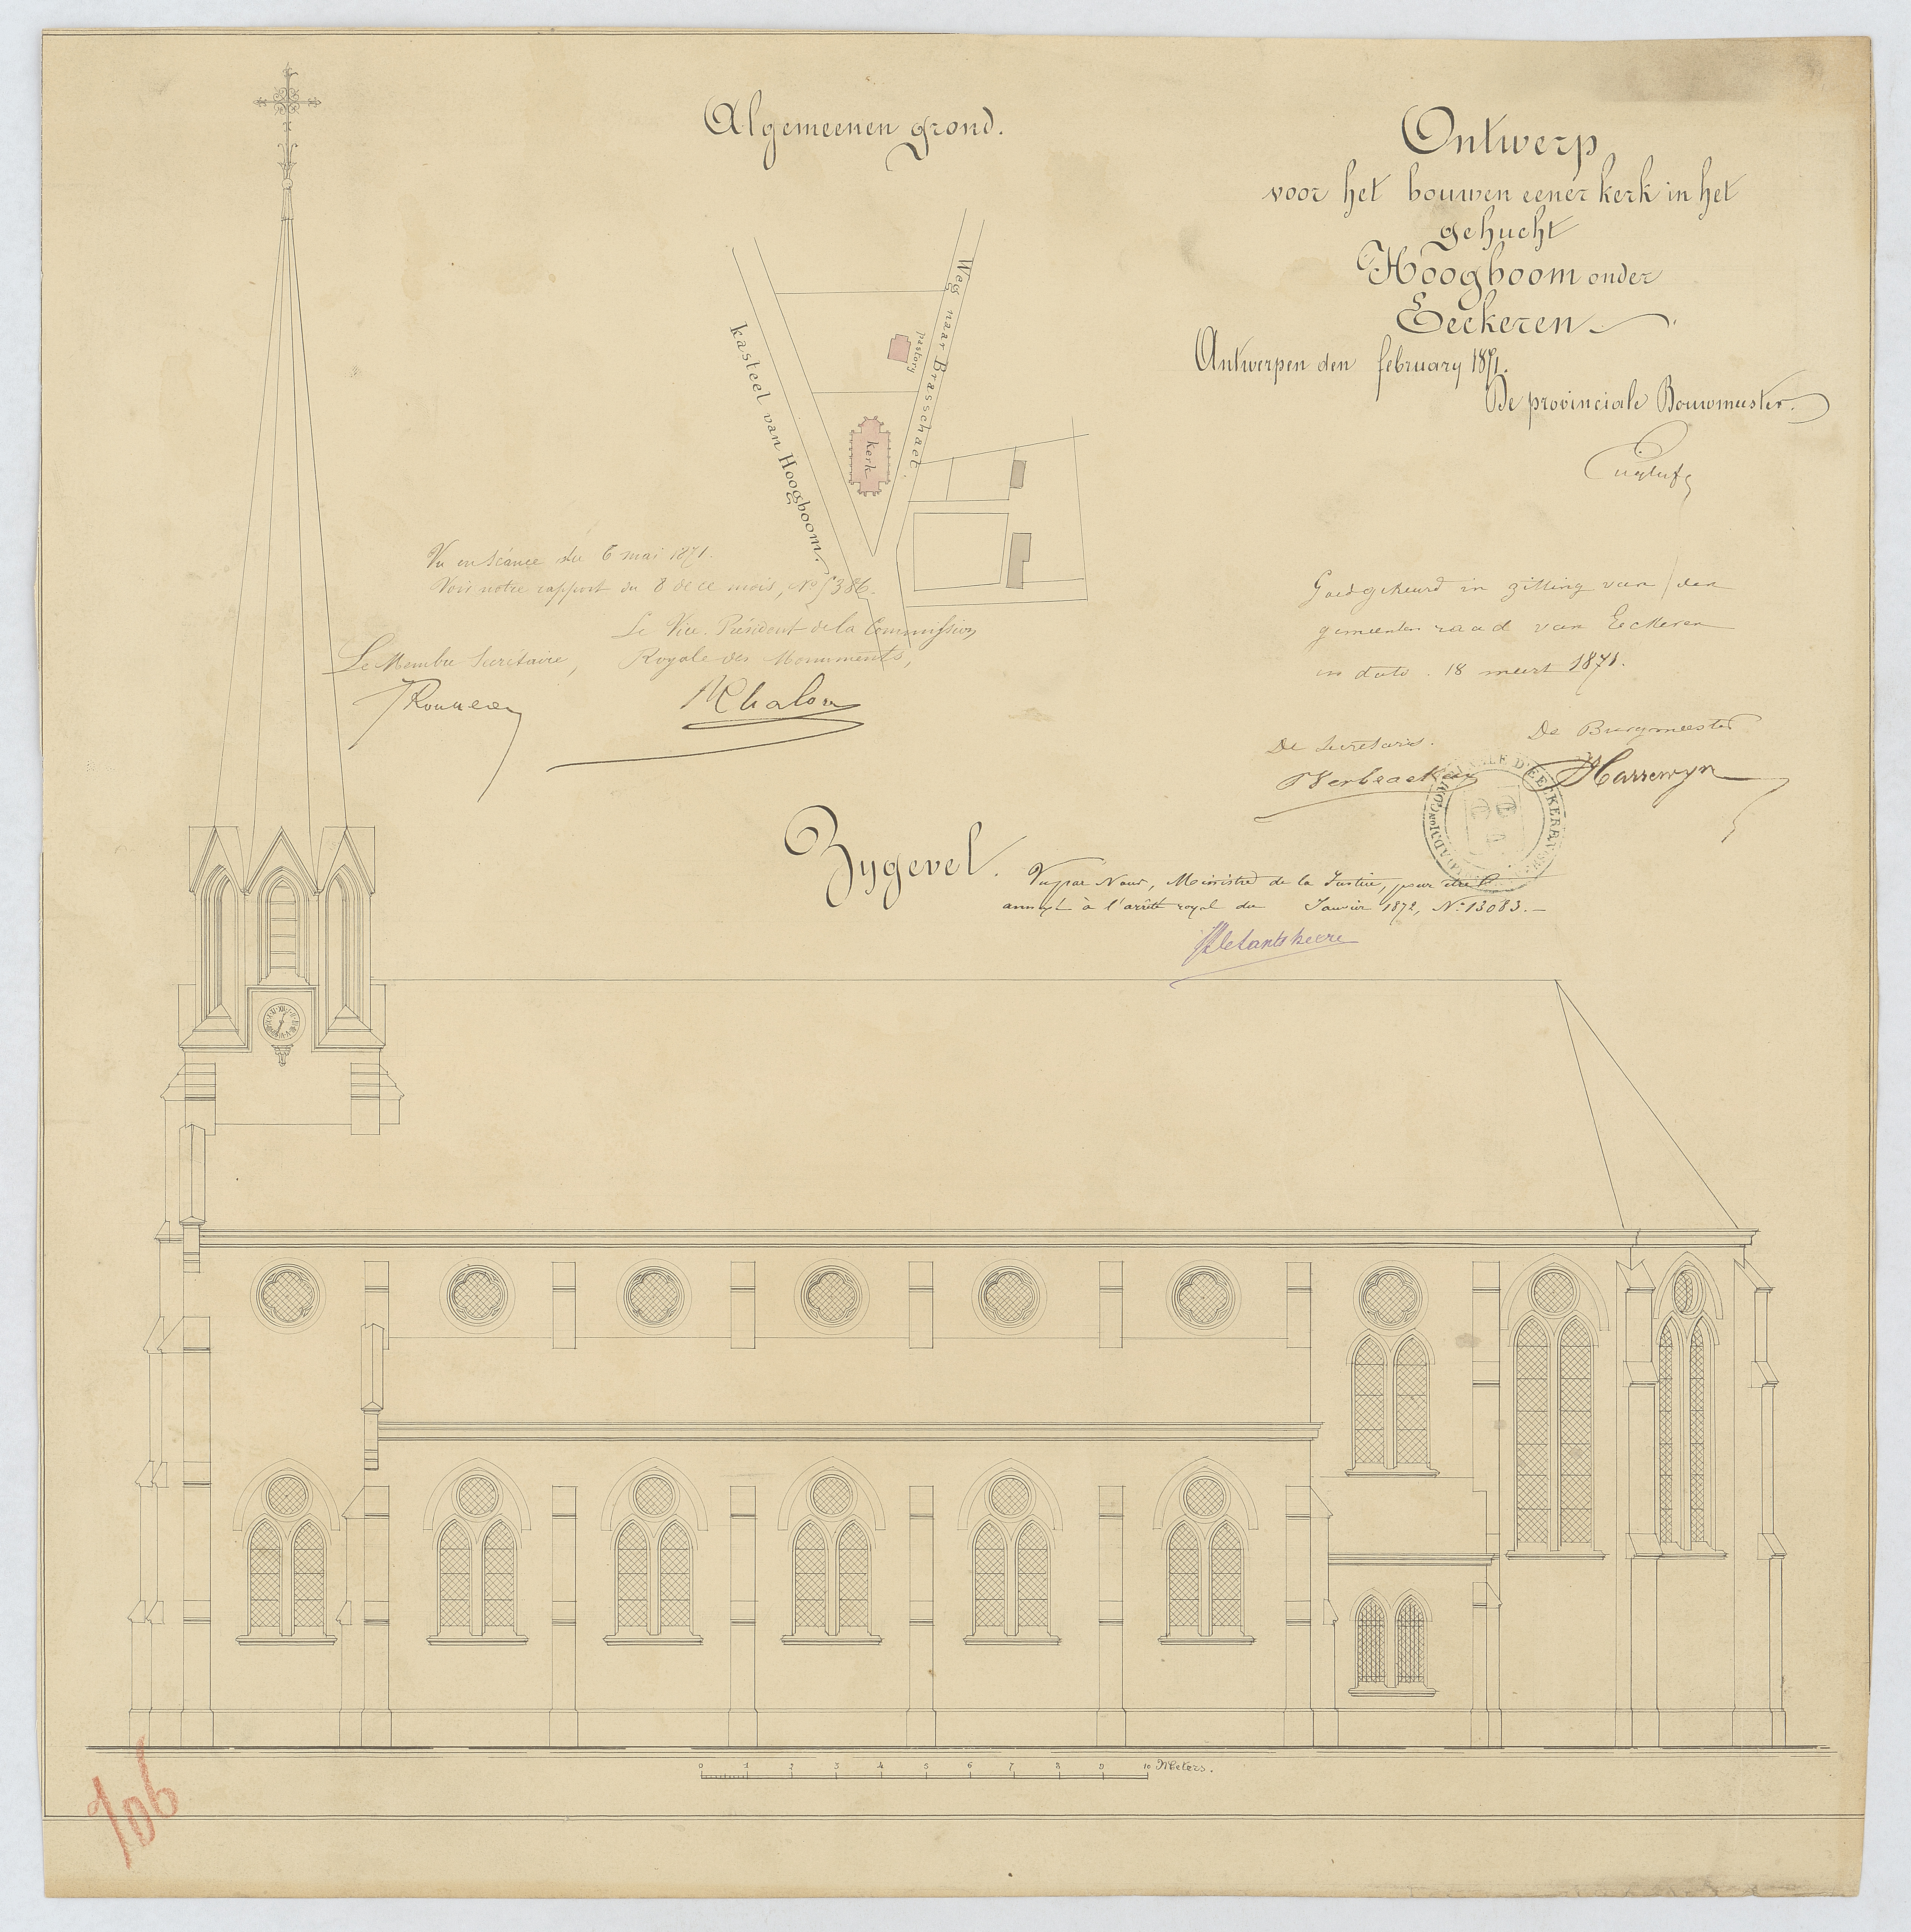 Algemeenen grond.
Ontwerp
voor het bouwen eener kerk in het
gehucht
Hoogboom onder
Eeckeren
Antwerpen den february 1871.
De provinciale Bouwmeester.
Weg naar Brasschaet.
pastory
kerk
kasteel van Hoogboom.
Vu en séance du 6 mai 1871.
Voir notre rapport du 8 de ce mois, No 386.
Le Vice-Président de la Commission
Royale des Monuments,
Le Membre Secrétaire,
Rousseau
Chalon
Goedgekeurd in zitting van den
gemeenten raad van Eeckeren
in dato . 18 meert 1871.
De Secretaris.
De Burgmeester
Verbraeken
Harrewyn
Zygevel.
Vu par Nous, Ministre de la Justice, pour être
annexé à l'arrêté royal du Janvier 1872, No 13083.—
De Lantsheere
0 1 2 3 4 5 6 7 8 9 10 Meters.
106